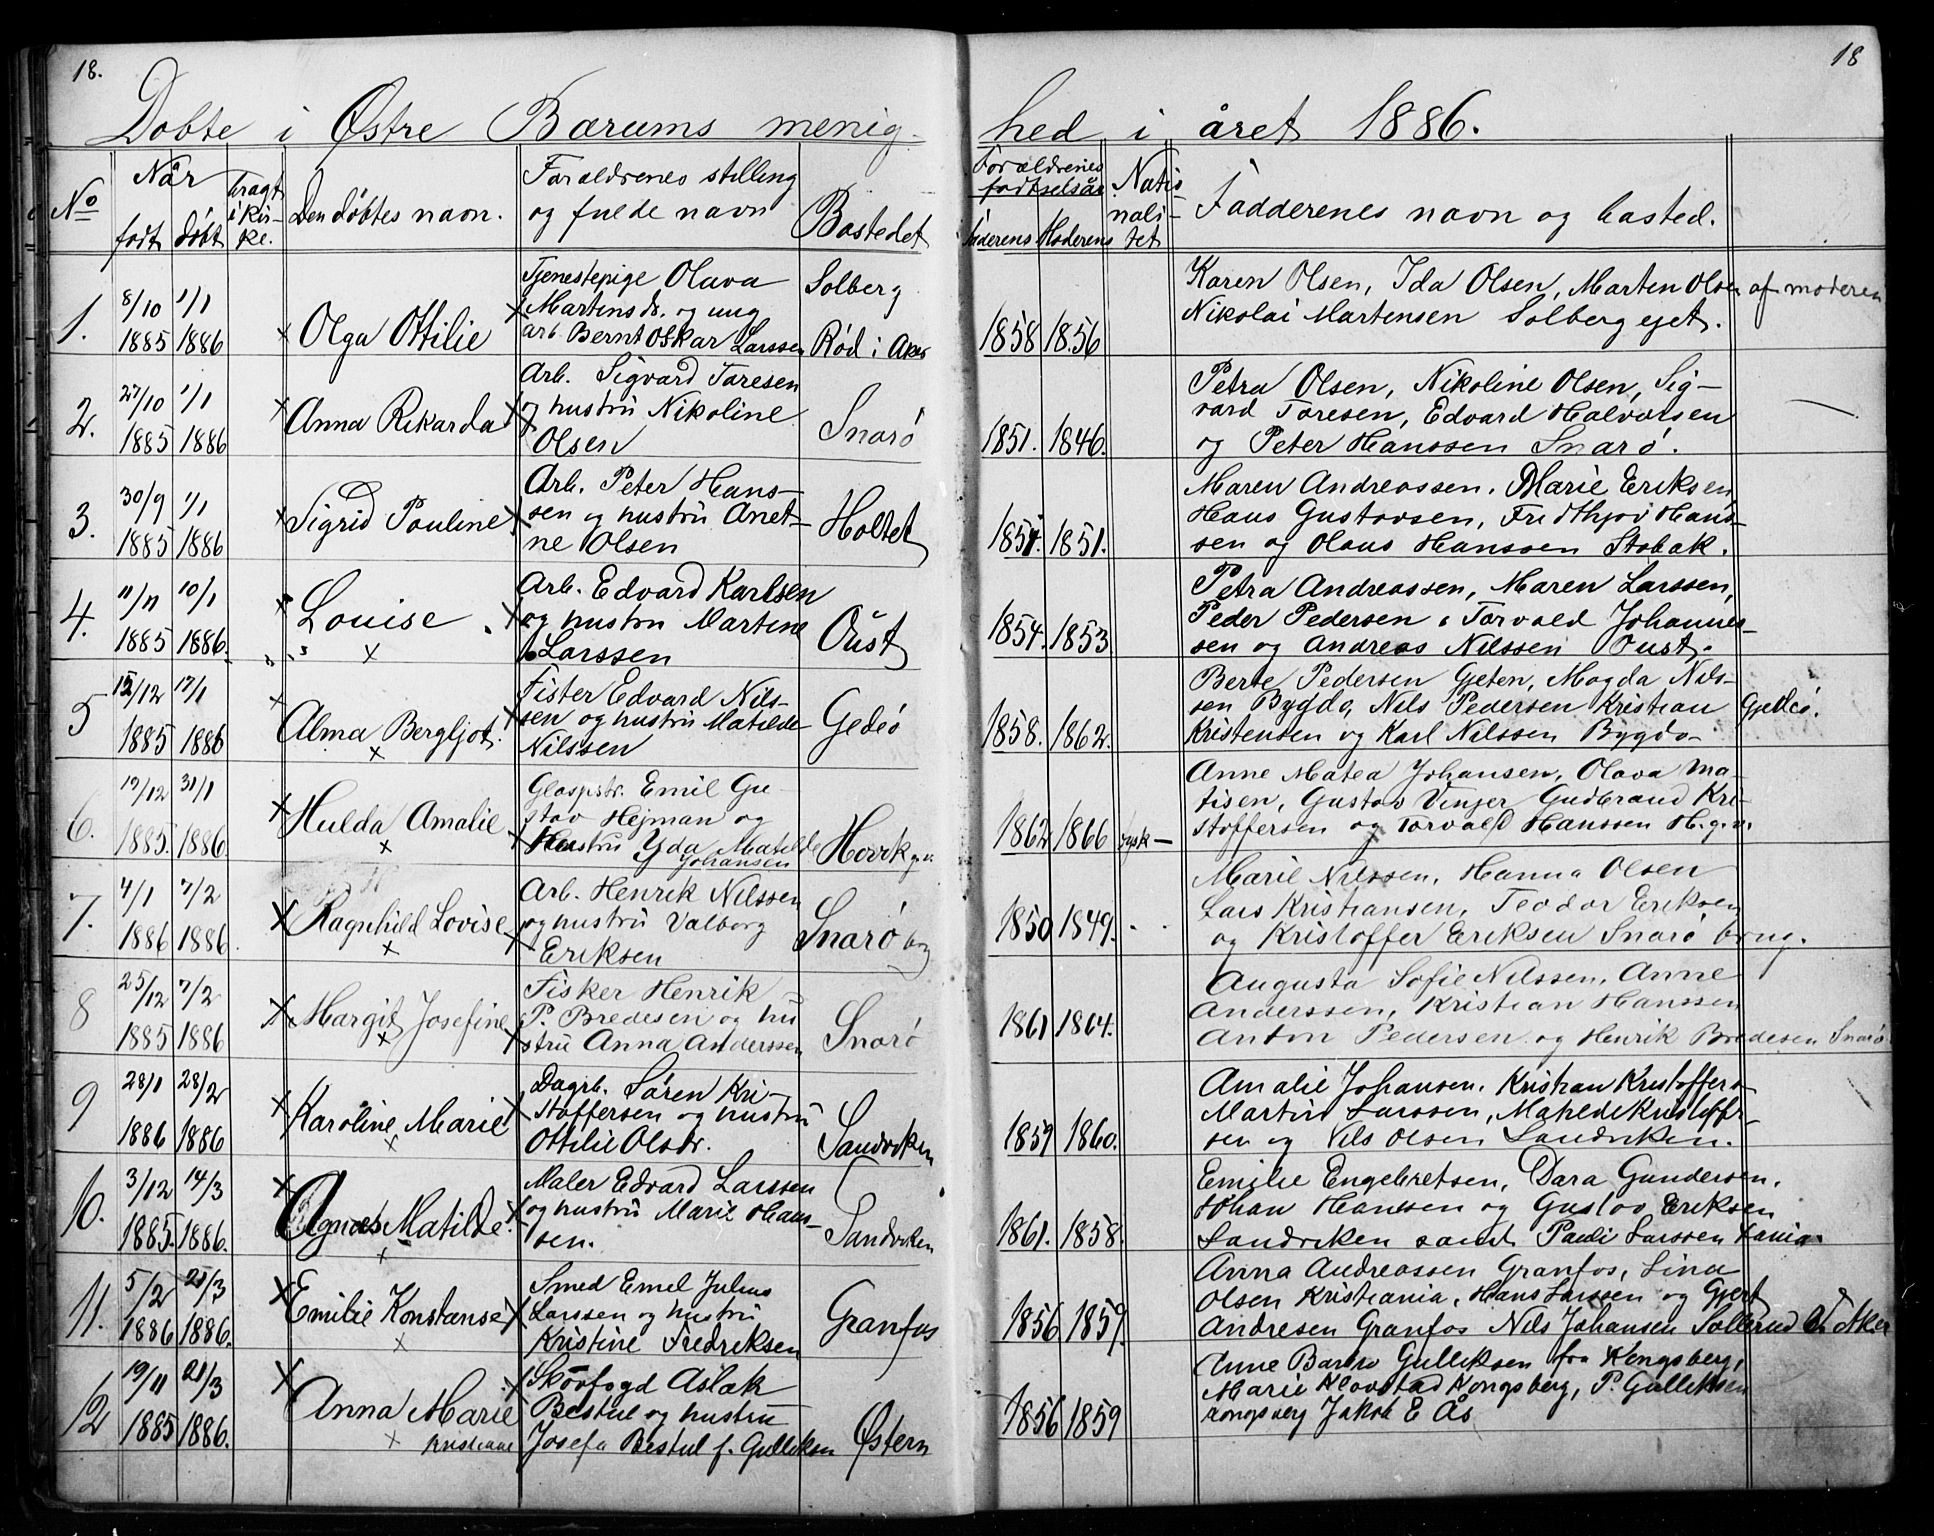 18.
18
Døbte i Østre Bærums menig-
hed i året 1886.
No
Når
født
døbt
bragt
i kir-
ke.
Den døbtes navn.
Forældrenes stilling
og fulde navn
Bostedet
Forældrenes
fødselsår
Faderens
Moderens
Natio
nali-
tet
Faddernes navn og bosted.
1.
8/10
1885
1/1
1886
Olga Ottilie
Tjenestepige Olava
Martensd. og ung
arb. Bernt Oskar Larssen
Solberg
Rød i Aker
1858
1856
Karen Olsen, Ida Olsen, Marten Olsen af moderen
Nikolai Martensen Solberg ejet.
2.
27/10
1885
1/1
1886
Anna Rikarda
Arb. Sigvard Toresen
og hustru Nikoline
Olsen
Snarø
1851.
1846.
Petra Olsen, Nikoline Olsen, Sig-
vard Toresen, Edvard Halvorsen
og Peter Hanssen Snarø.
3.
30/9
1885
1/1
1886
Sigrid Pauline
Arb. Peter Hans-
sen og hustru Anet-
ne Olsen
Holtet
1851.
Maren Andreassen, Marie Eriksen,
Hans Gustavsen, Fridthjov Hans-
sen og Olaus Hanssen Stabak.
4.
11/11
1885
10/1
1886.
Louise
Arb. Edvard Karlsen
og hustru Martine
Larssen
Oust
1854.
1853
Petra Andreassen, Maren Larssen,
Peder Pedersen, Torvald Johannes-
sen og Andreas Nilssen Oust.
5
15/12
1885
17/1
1886
Alma Bergljot.
Fisker Edvard Nils-
sen og hustru Matilde
Nilssen
Gedeø
1858.
1862.
Berte Pedersen Gjeten, Magda Nils-
sen Bygdø, Nils Pedersen Kristian Gjedeø.
Kristensen og Karl Nilssen Bygdø
6.
19/12
1885.
31/1
1886.
Hulda Amalie
Glaspstr. Emil Gu-
stav Hejman og
Hustru Yda Matilde
Johansen
Høvik gv.
1862
1866
tysk
Anne Matea Johansen, Olava Ma-
tisen, Gustav Vinger Gudbrand Kri-
stoffersen og Torvald Hanssen H.g.v.
7.
4/1
1886
7/2
1886.
Ragnhild Lovise
Arb. Henrik Nilssen
og hustru Valborg
Eriksen
Snarø brg
1850
1849.
Marie Nilssen, Hanna Olsen
Lars Kristiansen, Teodor Eriksen
og Kristoffer Eriksen Snarø brug.
8
25/12
1885
7/2
1886
Margit Josefine
Fisker Henrik
P. Bredesen og hu
stru Anna Anderssen
Snarø
1861
1864.
Augusta Sofie Nilssen, Anne
Anderssen, Kristian Hanssen
Anton Pedersen og Henrik Bredesen Snarø
9
28/1
1886
28/2
1886
Karoline Marie
Dagrb. Søren Kri-
stoffersen og hustru
Ottilie Olsdr.
Sandviken
1859
1860.
Amalie Johansen, Kristian Kristoffers
Martin Larssen, Matilde Kristoffer-
sen og Nils Olsen Sandviken.
10.
3/12
1885.
14/3
1886.
Agnes Matilde
Maler Edvard Larssen
og hustru Marie Hans-
sen.
Sandviken
1861.
1858.
Emilie Engebretsen, Dara Gundersen,
Johan Hanssen og Gustav Eriksen
Sandviken samt Pauli Larssen
11.
5/2
1886
21/3
1886.
Emilie Konstanse
Smed Emil Julius
Larssen og hustru
Kristine Fredriksen
Granfos
1856
1859.
Anna Andreassen Granfos, Lina
Olsen Kristiania, Hans Larssen og Gjert
Andresen Granfos Nils Johansen Sollerud V. Aker
12
19/11
1885
21/3
1886.
Anna Marie
Kristiane
Skovfogd Aslak
Bestul og hustru
Josefa Bestul f. Gulliksen
Østern
1856
1859
Anne Gulliksen fra Kongsberg,
Marie Klovstad Kongsberg, P. Gulliksen
Kongsberg Jakob E Ås